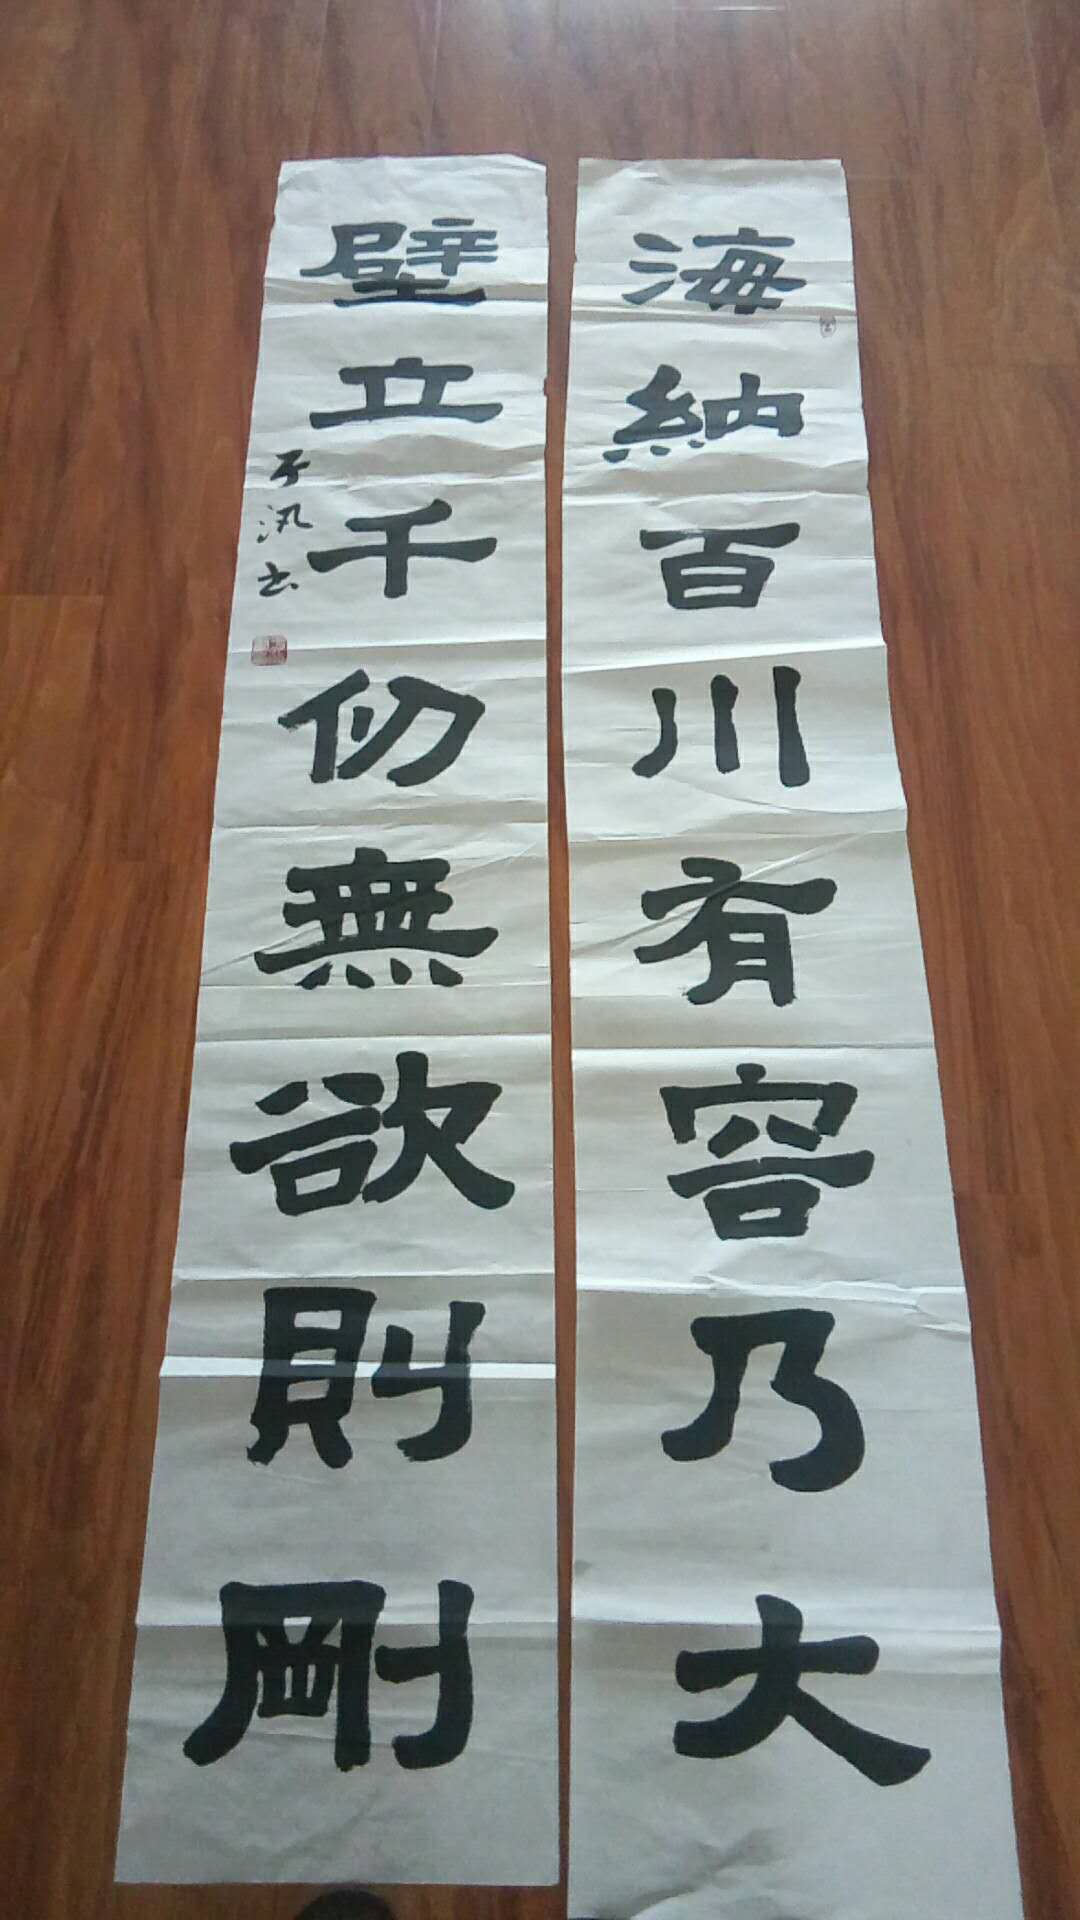 海納百川有容乃大
壁立千仞無欲則剛
子汎书